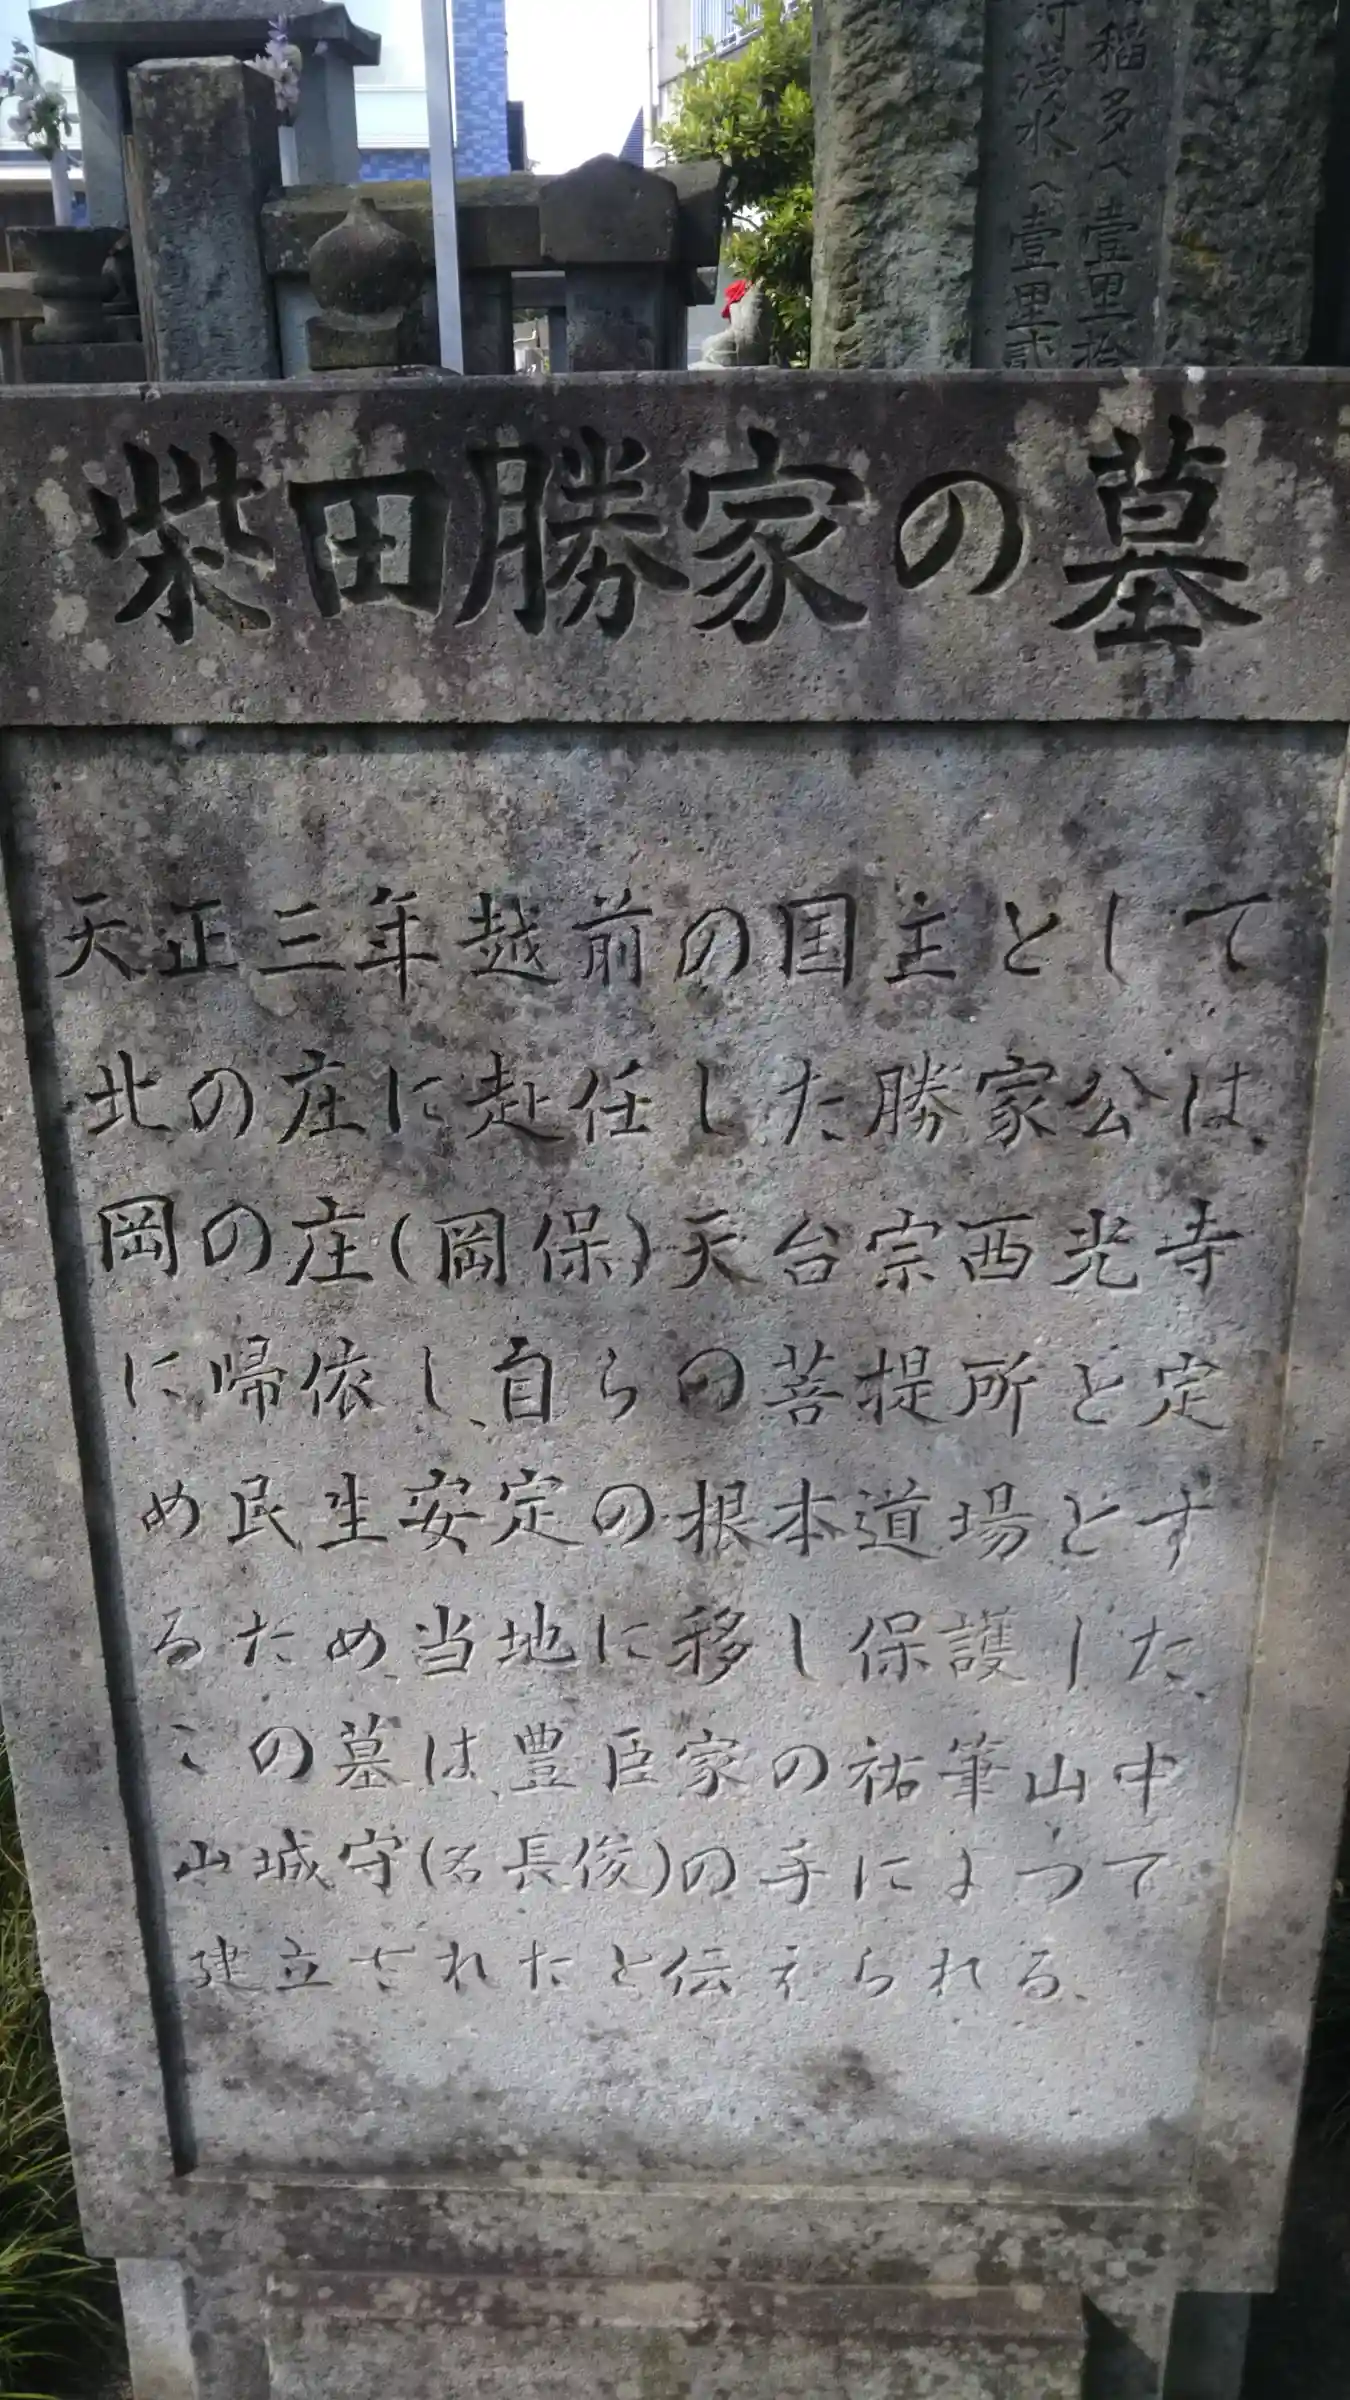 柴田勝家の墓
天正三年越前の国主として
北の庄に赴任した勝家公は、
岡の庄(岡保)天台宗西光寺
に帰依し、自らの菩提所と定
め民生安定の根本道場とす
るため、当地に移し保護した、
この墓は、豊臣家の祐筆山中
山城守(名長俊)の手によつて
建立されたと伝えられる、
稲多へ壹里拾
浄水へ壹里弐